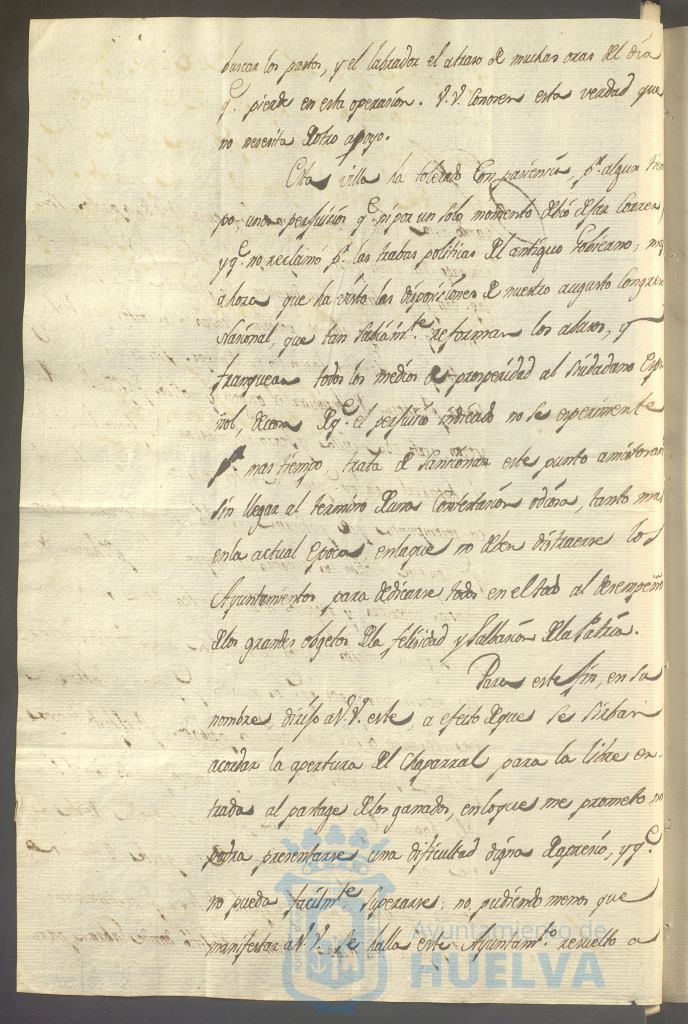 buscar los pastos, y el labrador el atraso de muchas oras del dia
q.e pierde en esta operasion. V.V. conosen esta verdad que
no nesesita de otro apoyo.
Esta villa ha tolerado con pasiencia, p.r algun tiem
po, un perjuisio q.e ni por un solo momento debió dejar correr,
y q.e no reclamó p.r las trabas politicas del antiguo Gobierno; mas
ahora que ha visto las disposisiones de nuestro augusto Congreso
Nasional, que tan sabiam.te reforman los abusos, y
franquean todos los medios de prosperidad al Siudadano Espa
ñol, deseosa de q.e el perjuisio indicado no se esperimente
p.r mas tiempo, trata de sansionar este punto amistosam
sin llegar al termino de una contestasion odiosa, tanto mas
en la actual epoca, en la que no deben distraerse los
Ayuntamientos para dedicarse todos en el todo al desempeño
de los grandes objetos de la felisidad y salbasion de la Patria.
Para este fin, en su
nombre, dirijo a V.V. este, a efecto de que se sirban
acordar la apertura del Chaparral para la libre en-
trada al pastage de los ganados, en lo que me prometo no
podra presentarse una dificultad digna de apresio, y q.e
no pueda facilm.te superarse; no pudiendo menos que
manifestar a V.V. se halla este Ayuntam.to resuelto a
Ayuntamiento de
HUELVA